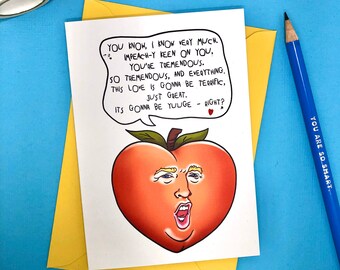 YOU KNOW, I KNOW VERY MUCH,
IMPEACH-Y KEEN ON YOU,
YOU'RE TREMENDOUS.
SO TREMENDOUS, AND EVERYTHING,
THIS LOVE IS GONNA BE TERRIFIC,
JUST GREAT.
IT'S GONNA BE YUUGE - RIGHT?
YOU ARE SO SMART.